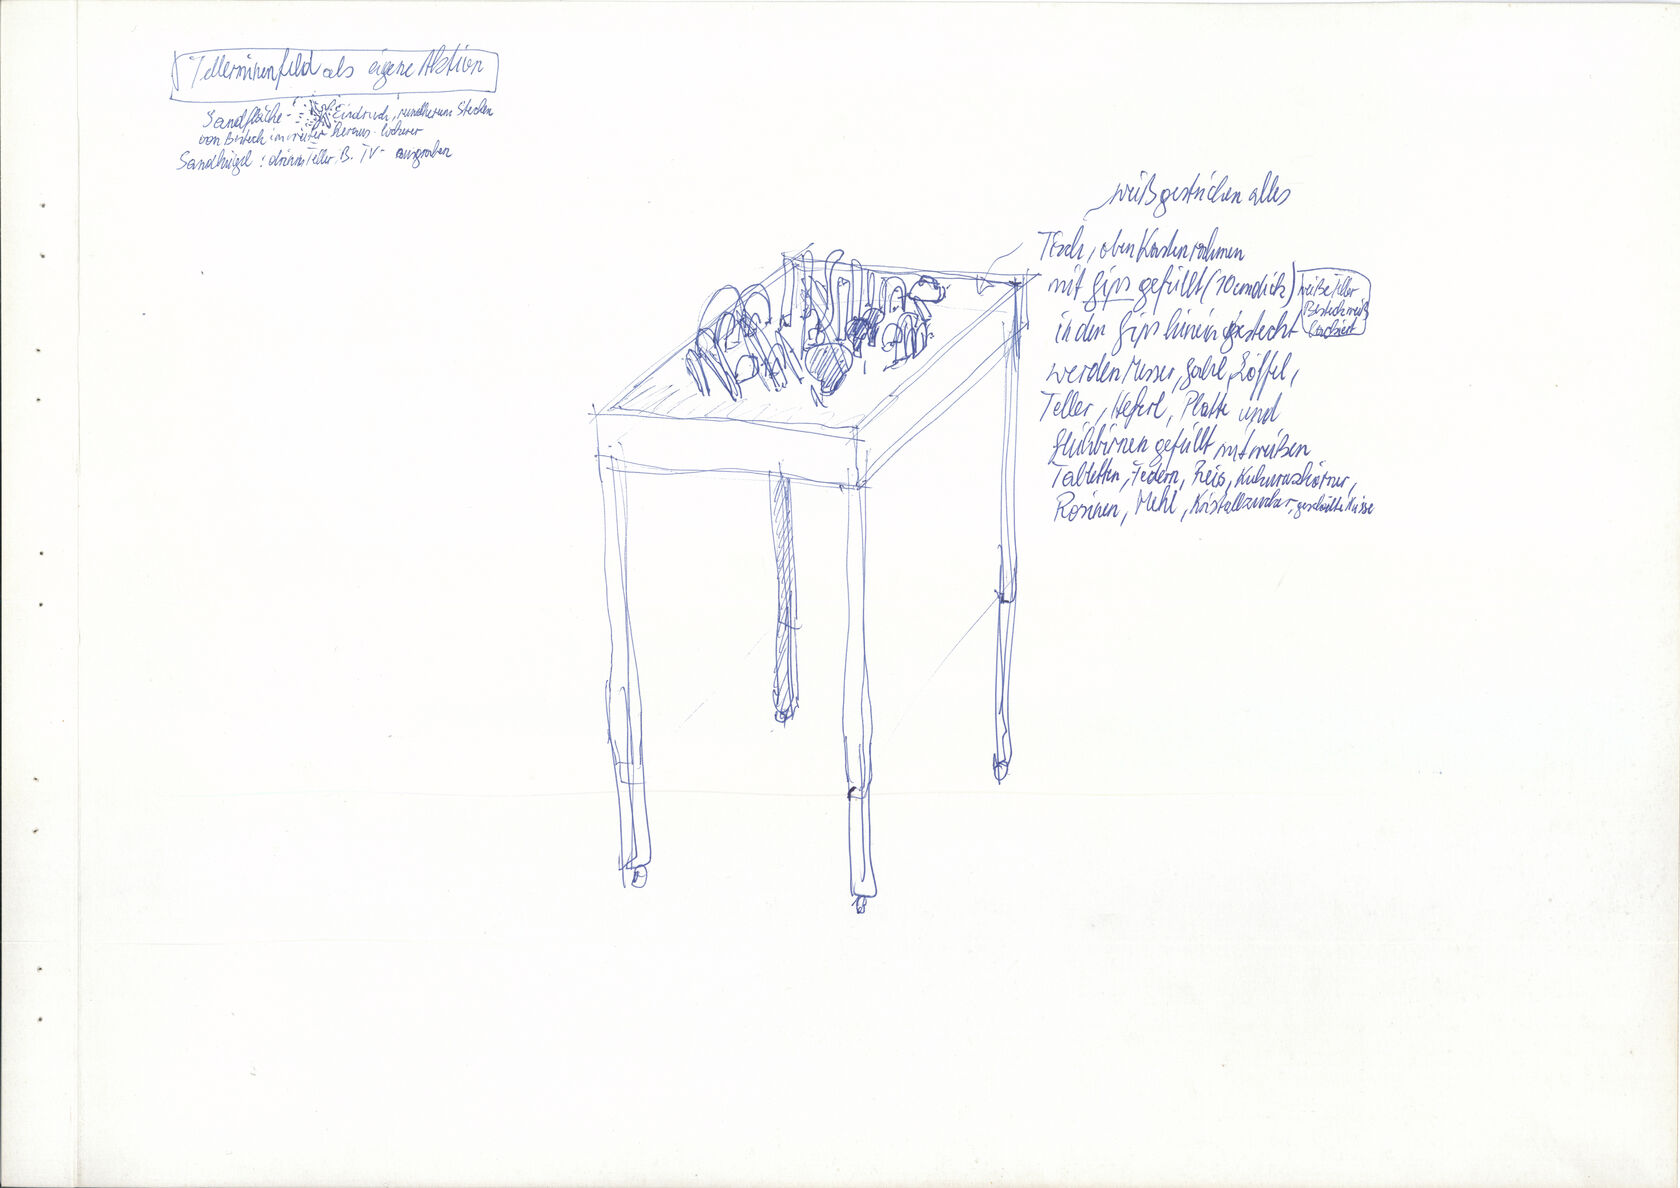 Tellerminenfeld als eigene Aktion
Sandfläche - Eindruck, rundherum Stecken
vom Besteck immer weiter heraus - lockerer
Sandhügel: drinnen Teller B. TV - ausgraben
weiß gestrichen alles
Tisch, oben Kastenrahmen
mit Gips gefüllt (10 cm dick)
in den Gips hinein gesteckt
werden Messer, Gabel, Löffel,
Teller, Heferl, Platte und
Glühbirnen gefüllt mit weißen
Tabletten, Federn, Reis, Kukuruzkörner,
Rosinen, Mehl, Kristallzucker, geschälte Nüsse
weiße Teller
Besteck weiß
lackiert